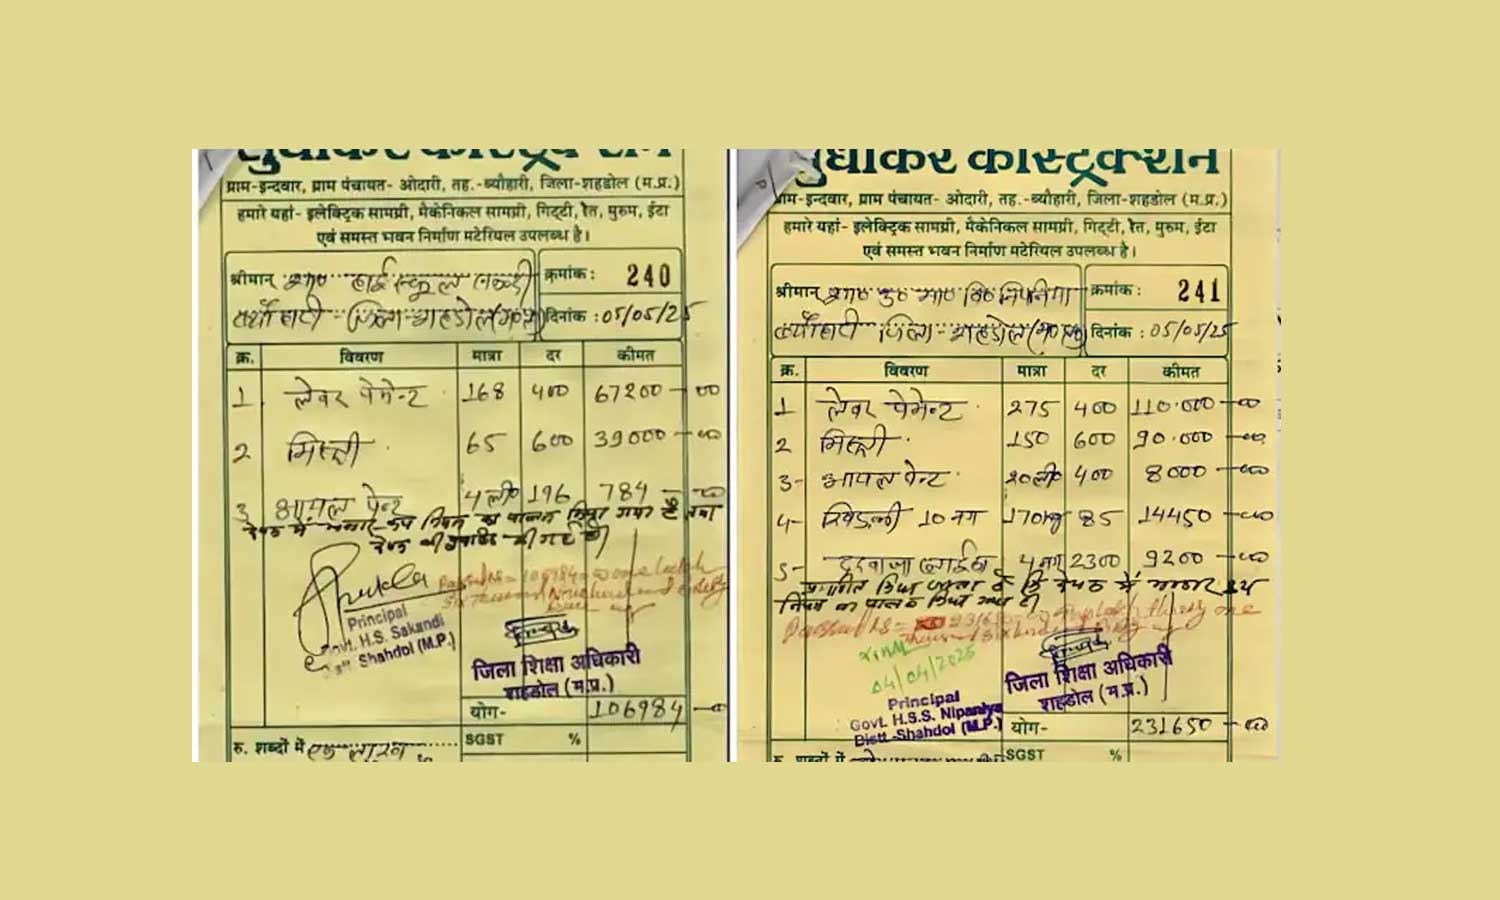 सुधाकर कंस्ट्रक्शन
ग्राम-इन्दवार, ग्राम पंचायत- ओदारी, तह.-ब्यौहारी, जिला-शहडोल (म.प्र.)
हमारे यहां- इलेक्ट्रिक सामग्री, मैकेनिकल सामग्री, गिट्टी, रेत, मुरूम, ईंटा
एवं समस्त भवन निर्माण मटेरियल उपलब्ध है।
श्रीमान् शा० हाई स्कूल सकन्दी क्रमांक : 240
ब्यौहारी जिला शहडोल (म०प्र०) दिनांक : 05/05/25
क्र. विवरण मात्रा दर कीमत
1 लेवर पेमेन्ट 168 400 67200 - 00
2 मिस्त्री 65 600 39000 - 00
3 आयल पेन्ट 4 ली० 196 784 - 00
में भण्डार क्रय नियम का पालन किया गया है तथा
की गई है।
Passed Rs = 106984 = 00 one Lakh
Six Thousand Nine hundred and eighty
four
Principal
Govt. H.S. Sakandi
Distt. Shahdol (M.P.)
जिला शिक्षा अधिकारी
शहडोल (म.प्र.)
योग- 106984 - 00
रु. शब्दों में एक लाख
SGST %
सुधाकर कंस्ट्रक्शन
ग्राम-इन्दवार, ग्राम पंचायत- ओदारी, तह.-ब्यौहारी, जिला-शहडोल (म.प्र.)
हमारे यहां- इलेक्ट्रिक सामग्री, मैकेनिकल सामग्री, गिट्टी, रेत, मुरूम, ईंटा
एवं समस्त भवन निर्माण मटेरियल उपलब्ध है।
श्रीमान् शा० उ० मा० वि० निपनिया क्रमांक : 241
ब्यौहारी जिला - शहडोल (म०प्र०) दिनांक : 05/05/25
क्र. विवरण मात्रा दर कीमत
1 लेवर पेमेन्ट 275 400 110.000 - 00
2 मिस्त्री 150 600 90.000 - 00
3- आयल पेन्ट 20 ली० 400 8000 - 00
4- खिड़की 10 नग 170 kg 85 14450 - 00
5- दरवाजा 4 नग 2300 9200 - 00
प्रमाणित किया जाता है कि में भण्डार क्रय
नियम का पालन किया गया है।
Passed Rs = 231650 = 00 Two Lakh thirty one
Thousand Six hundred fifty
04/04/2025
Principal
Govt. H.S.S. Nipaniya
Distt.-Shahdol (M.P.)
जिला शिक्षा अधिकारी
शहडोल (म.प्र.)
योग- 231650 - 00
रु. शब्दों में
SGST %